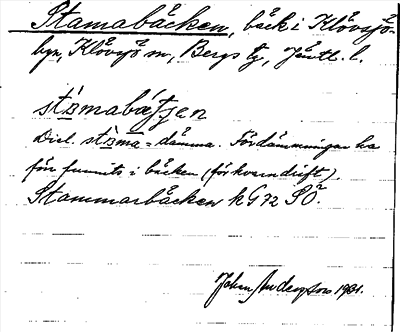 Stamabäcken, bäck i Klövsjö-
byn, Klövsjö sn, Bergs tg, Jämtl. l.
Dial. = dämma. Fördämningar ha
förr funnits i bäcken (för kvarndrift).
Stammarbäcken k G 72 SÖ.
Johan Anderson 1931.